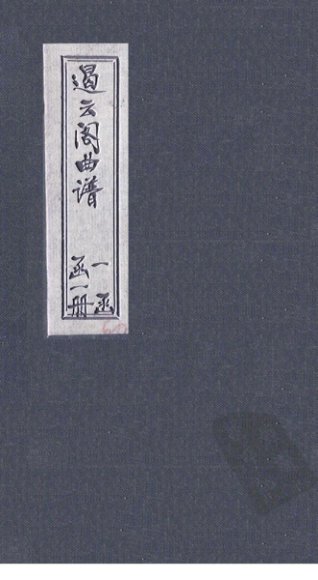 遏云阁曲谱
一函
函一册